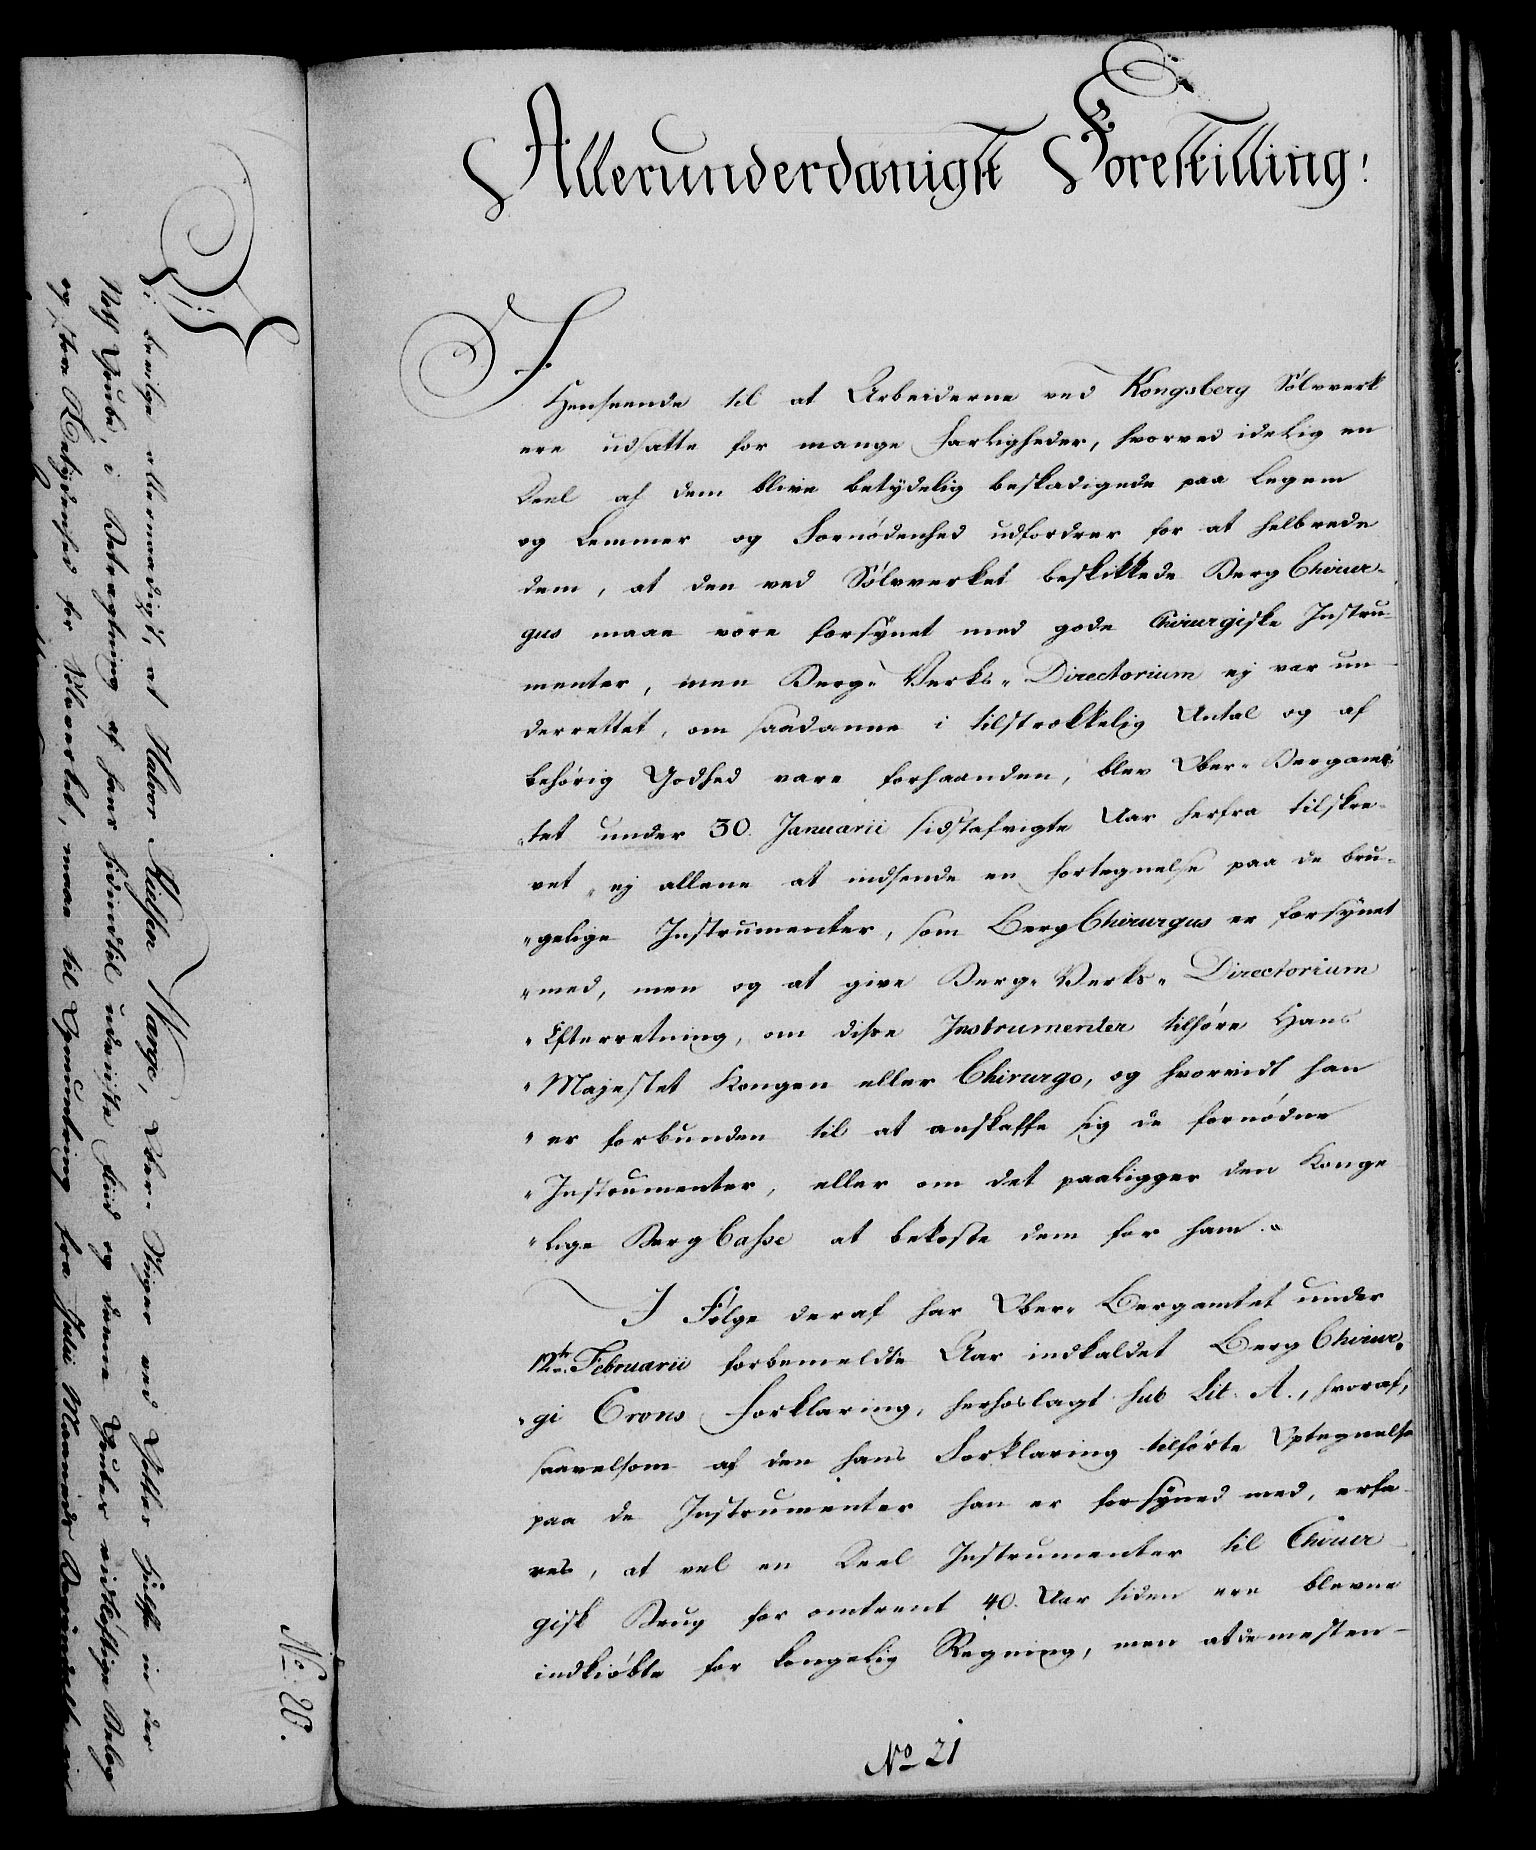 Allerunderdanigst Forestilling!
I
Henseende til at Arbeiderne ved Kongsberg Sølvverk
ere udsatte for mange Farligheder, hvorved idelig en
Deel af dem blive betydelig beskadigede paa Legem
og Lemmer og Fornødenhed udfordrer for at helbrede
dem, at den ved Sølvverket beskikkede Berg Chirur-
gus maae være forsynet med gode Chirurgiske Instru-
menter, men Berg-Verks-Directorium ej var un-
derrettet, om saadanne i tilstrækkelig Antal og af
behørig Godhed vare forhaanden, blev Ober-Bergam-
tet under 30. Januarii sidstafvigte Aar herfra tilskre-
vet „ej allene at indsende en Fortegnelse paa de bru-
„gelige Instrumenter, som Berg Chirurgus er forsynet
„med, men og at give Berg-Verks-Directorium
„Efterretning, om disse Instrumenter tilhøre Hans
„Majestet Kongen eller Chirurgo, og hvorvidt han
„er forbunden til at anskaffe sig de fornødne
„Instrumenter, eller om det paaligger den Konge
„lige Berg Casse at bekoste dem for ham.„
I Følge deraf har Ober-Bergamtet under
12te Februarii forbemeldte Aar indkaldet Berg Chirur-
gi Crons Forklaring, herhoslagt sub Lit. A., hvoraf,
saavelsom af den hans Forklaring tilførte Optegnelse
paa de Instrumenter han er forsyned med, erfa-
res, at vel en Deel Instrumenter til Chirur-
gisk Brug for omtrent 40. Aar siden ere blevne
indkiøbte for kongelig Regning, men at de mesten-
No 21
Vi bevilge allernaadigst, at Halvor Knudsen Warge, Ober-Stiger ved Gottes Hülfe in der
Noth Grube, i Betragtning af hans hidindtil udviste Fliid og denne Grubes vidtløftige Belæg
og store Betydenhed for Sølvverket, maae til Opmuntring fra Julii Maaneds Begyndelse
No. 20.